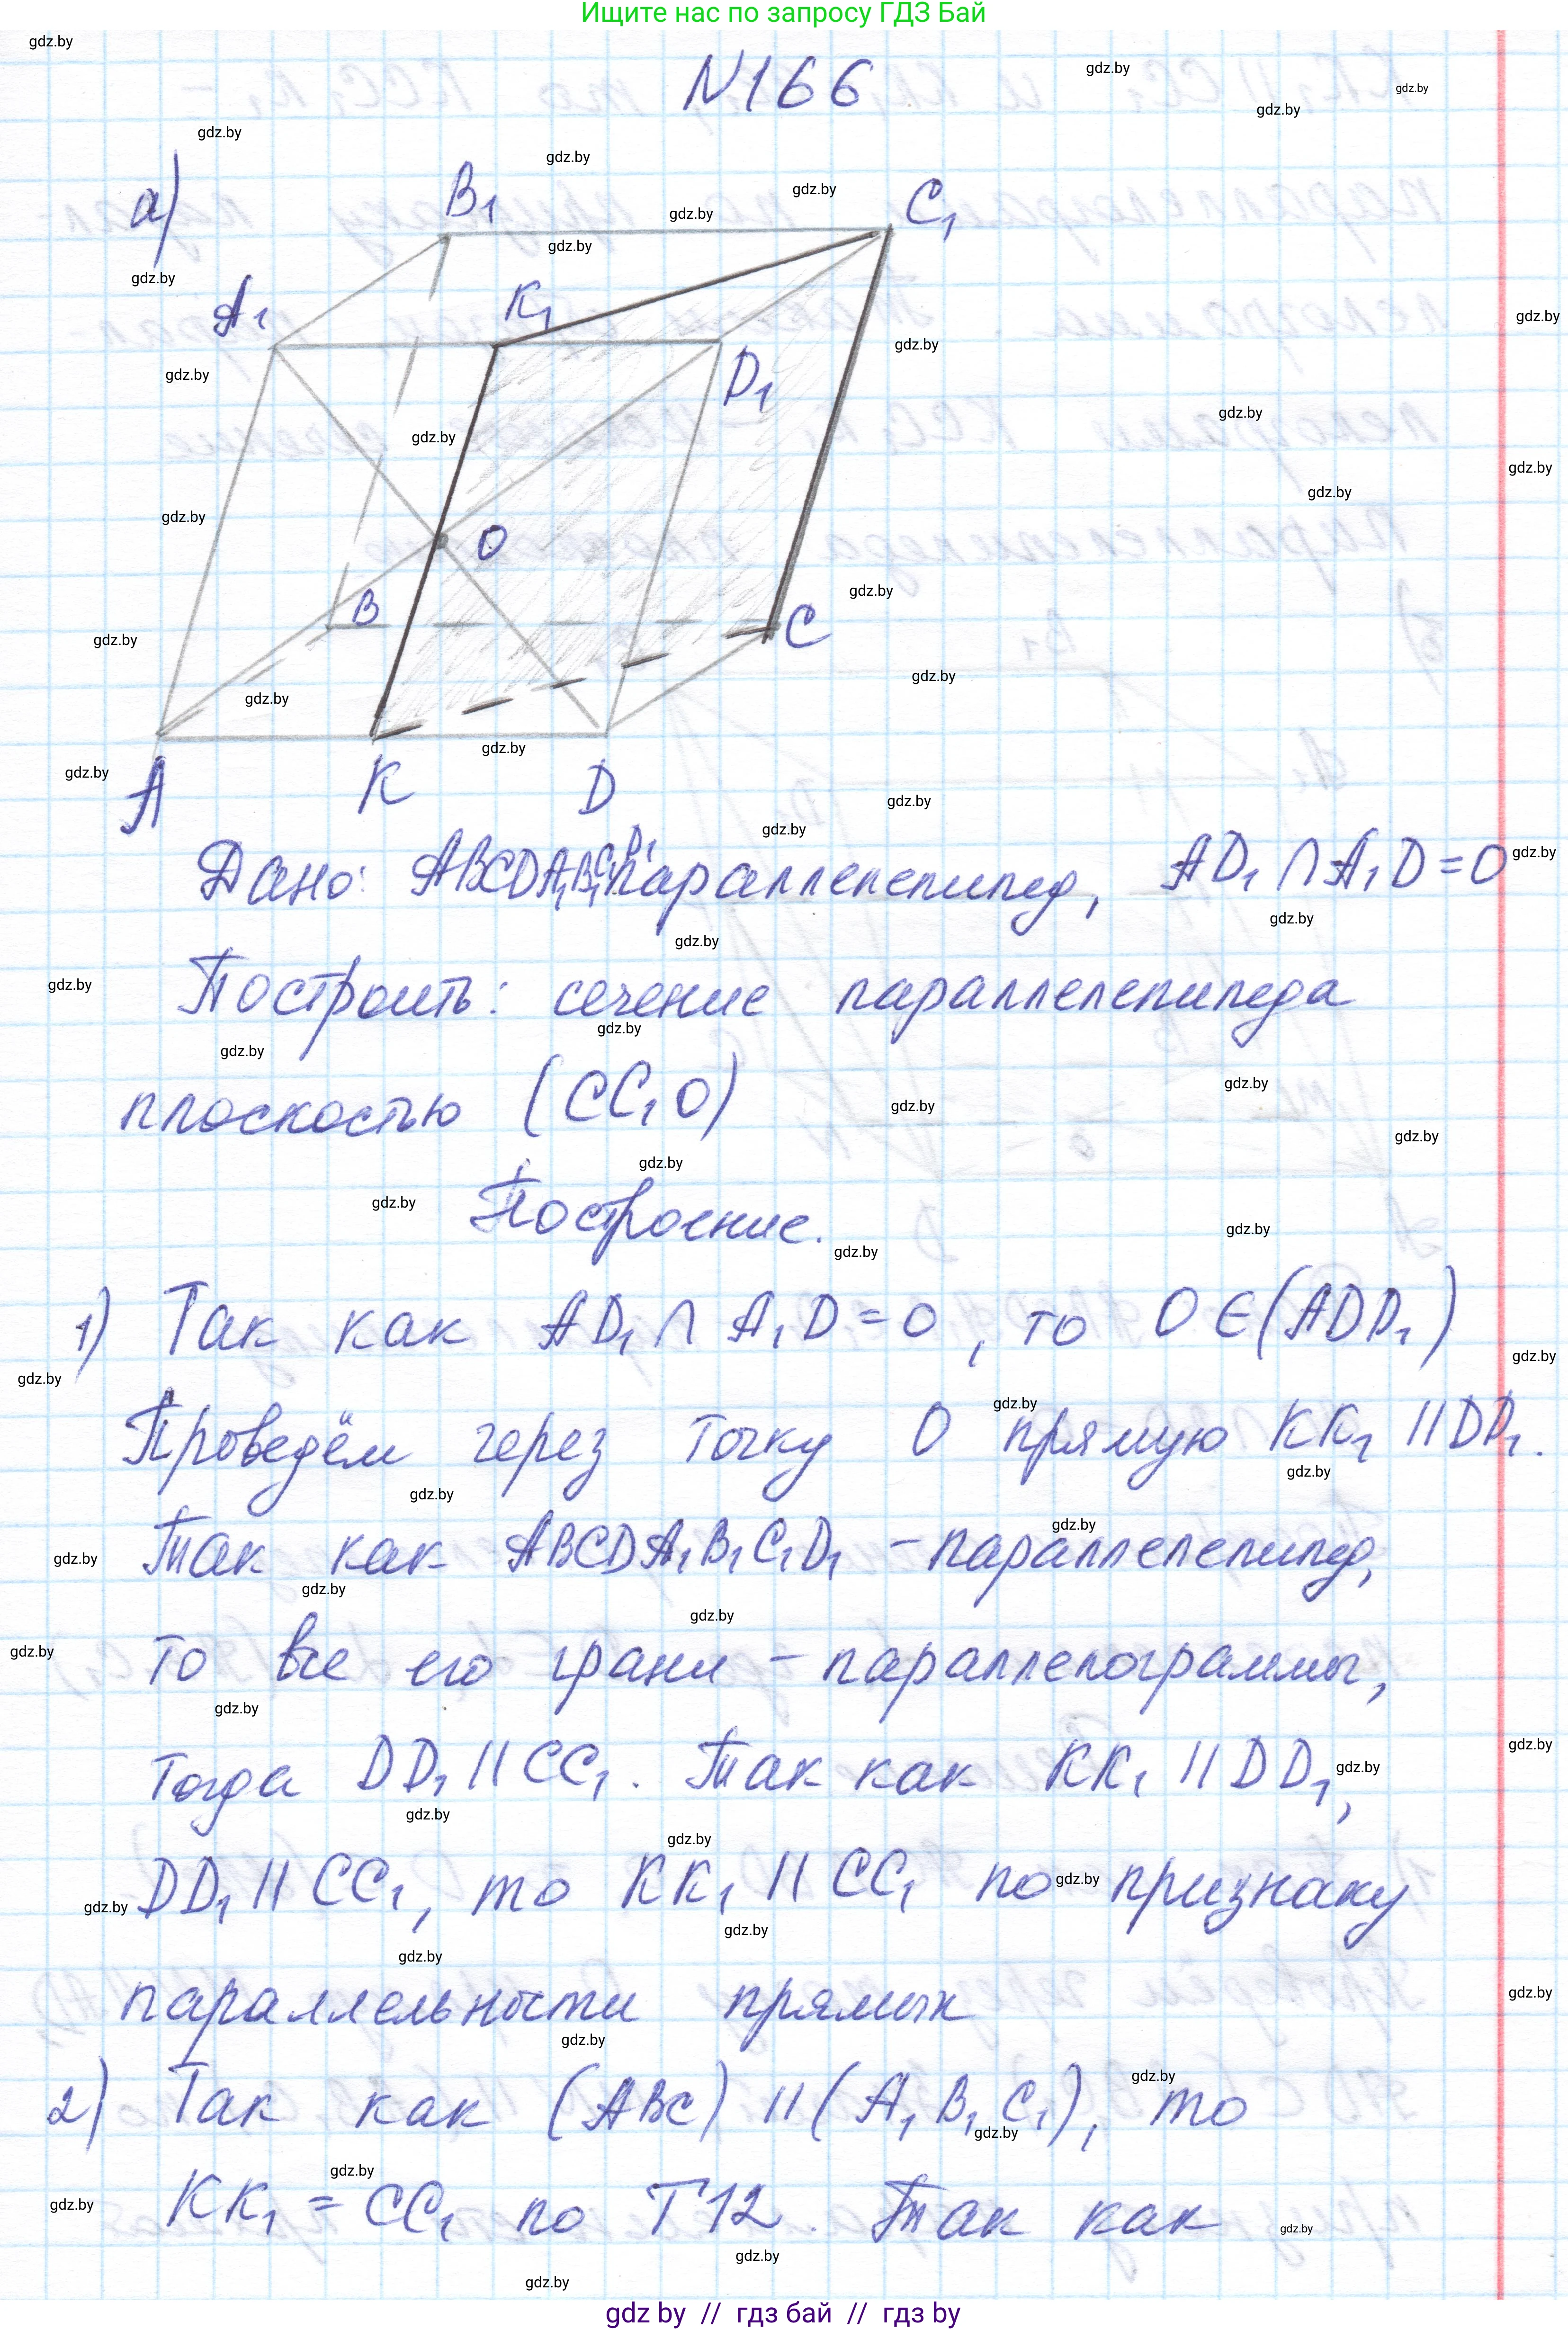 Ищите нас по запросу ГДЗ Бай
N166
а)
B₁
C₁
A₁
K₁
D₁
O
B
C
A
K
D
Дано: ABCDA₁B₁C₁D₁ параллепепипед, AD₁ ∩ A₁D = O
Построить: сечение параллелепипеда
плоскостью (CC₁O)
Построение.
1) Так как AD₁ ∩ A₁D = O, то O ∈ (ADD₁)
Проведём через точку O прямую KK₁ || DD₁.
Так как ABCDA₁B₁C₁D₁ - параллелепипед,
то все его грани - параллелограммы,
тогда DD₁ || CC₁. Так как KK₁ || DD₁,
DD₁ || CC₁, то KK₁ || CC₁ по признаку
параллельности прямых
2) Так как (ABC) || (A₁B₁C₁), то
KK₁ = CC₁ по Т12. Так как
gdz by // гдз бай // гдз by